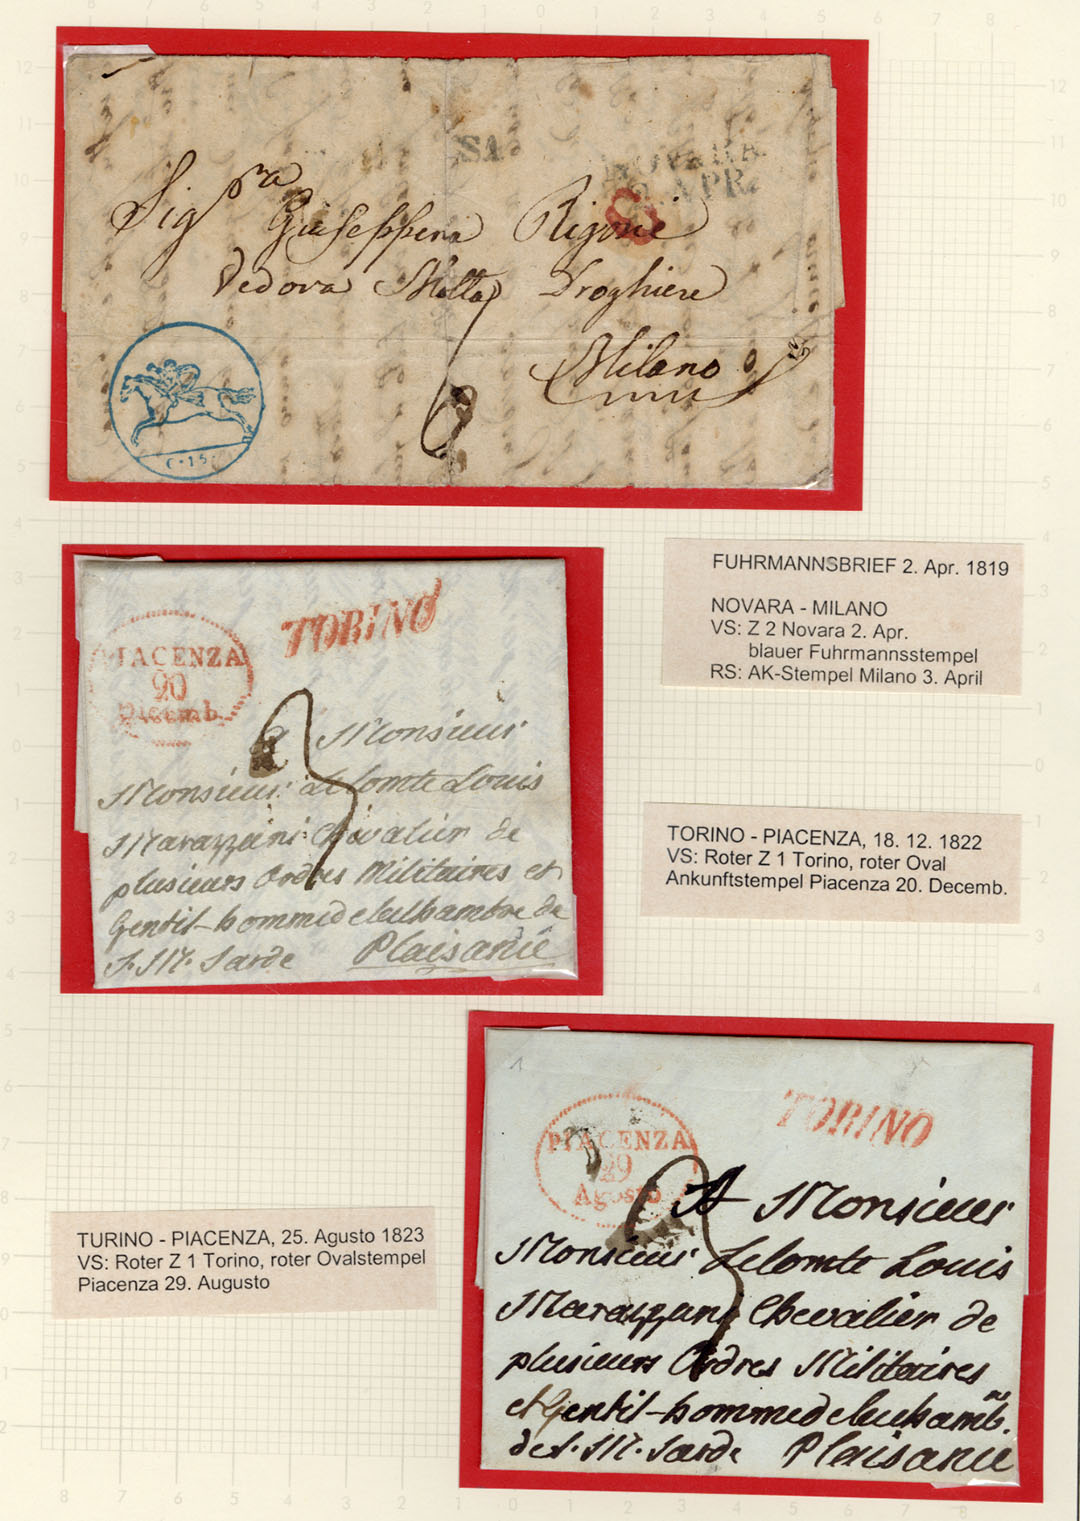 SA
NOVARA
2 APR.
Sig.ra Giuseppena Rigone
Vedova Motta Droghiere
Milano
C. 15
FUHRMANNSBRIEF 2. Apr. 1819
NOVARA - MILANO
VS: Z 2 Novara 2. Apr.
blauer Fuhrmannsstempel
RS: AK-Stempel Milano 3. April
TORINO
PIACENZA
20
Dicemb.
a Monsieur
Monsieur Le Comte Louis
Marazzani Chevalier de
plusieurs Ordres Militaires et
Gentil-homme de la Chambre de
S. M. Sarde Plaisance
TORINO - PIACENZA, 18. 12. 1822
VS: Roter Z 1 Torino, roter Oval
Ankunftstempel Piacenza 20. Decemb.
TORINO
PIACENZA
29
Agosto
A Monsieur
Monsieur Le Comte Louis
Marazzani Chevalier de
plusieurs Ordres Militaires
et Gentil-homme de la Chamb.re
de S. M. Sarde Plaisance
TURINO - PIACENZA, 25. Agusto 1823
VS: Roter Z 1 Torino, roter Ovalstempel
Piacenza 29. Augusto